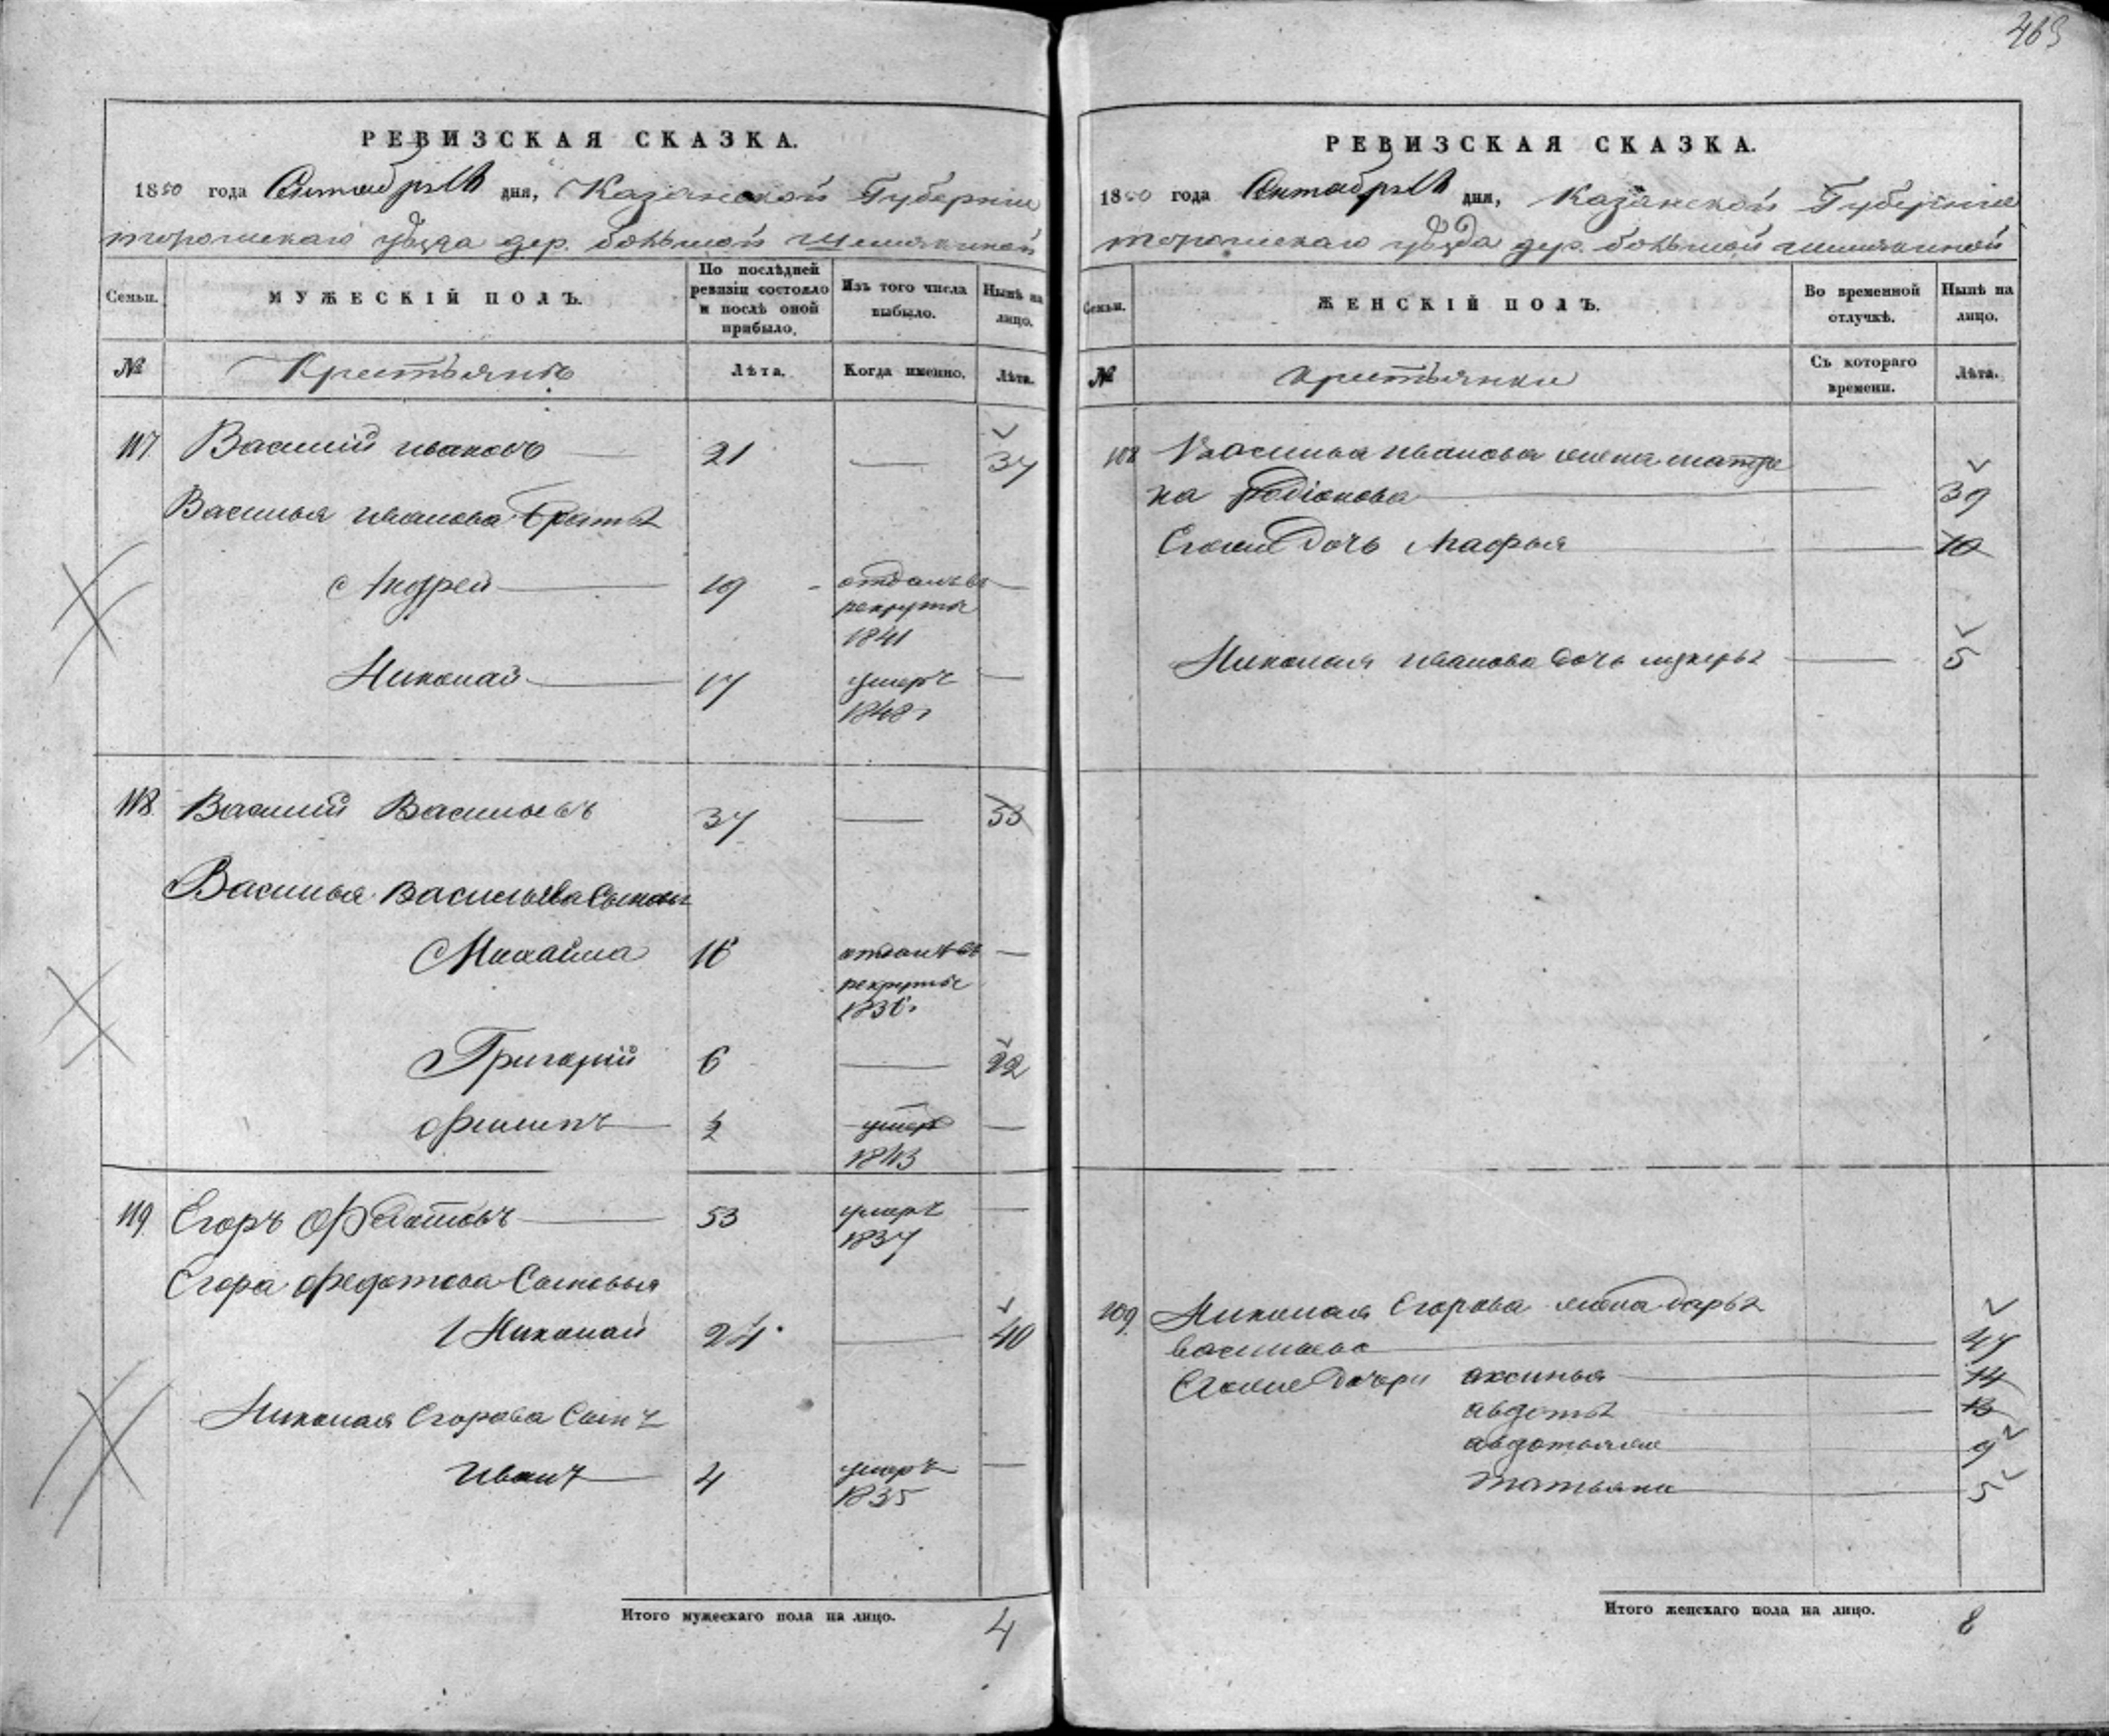 463
РЕВИЗСКАЯ СКАЗКА.
1850 года Сентября дня, Казанской Губерніи
уѣзда дер. большой
Семьи.
МУЖЕСКІЙ ПОЛЪ.
По послѣдней ревизіи состояло и послѣ оной прибыло.
Изъ того числа выбыло.
Нынѣ на лицо.
№
Крестьянъ
Лѣта.
Когда именно.
Лѣта.
117 Василій Ивановъ 21 — 37
Василья Иванова братья
Андрей 19 отданъ въ
рекруты
1841
Николай 17 умеръ
1848 г
118 Василій Васильевъ 37 — 53
Василья Васильева Сыновья
Михайла 16 отданъ въ
рекруты
1836 г
Григорій 6 — 22
Филипъ ½ умер
1843
119 Егоръ Федотовъ 53 умеръ
1837
Егора Федотова Сыновья
1 Николай 24 — 40
Николая Егорова Сынъ
Иванъ 4 умеръ
1835
Итого мужескаго пола на лицо. 4
РЕВИЗСКАЯ СКАЗКА.
1850 года Сентября дня, Казанской Губерніи
уѣзда дер. большой
Семьи.
ЖЕНСКІЙ ПОЛЪ.
Во временной отлучкѣ.
Нынѣ на лицо.
№
крестьянки
Съ котораго времени.
Лѣта.
108 Василья Иванова жена матре
на Родіонова 39
Егоже дочь Марфья 10
Николая Иванова дочь 5
109 Николая Егорова жена дарья
васильева 47
Егоже дочери аксинья 14
авдотья 13
авдотьяже 9
татьяна 5
Итого женскаго пола на лицо. 8